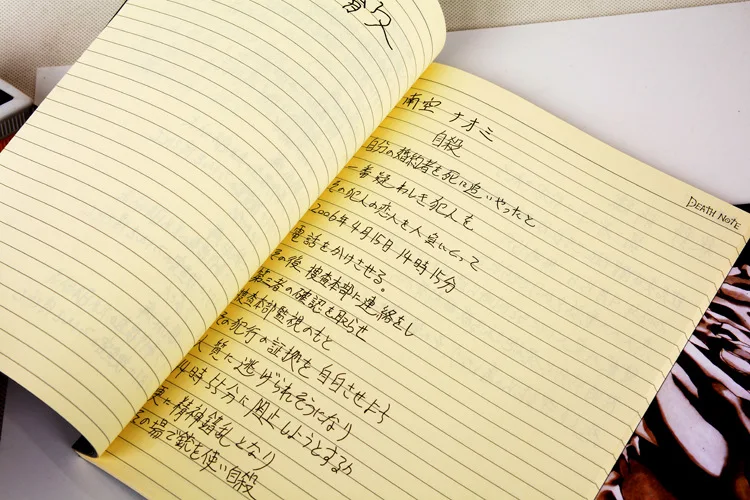 殺
DEATH NOTE
南空 ナオミ
自殺
自分の婚約者を死に追いやったと
一番疑わしき犯人を
その犯人の恋人を人質にとって
2006年4月15日14時15分
電話をかけさせる。
その後、捜査本部に連絡をし
第三者の確認を取らせ
捜査本部監視のもと
その犯行の証拠を自白させよう
人質に逃げられそうになり
14時55分に阻止しようとするが
更に精神錯乱となり
その場で銃を使い自殺